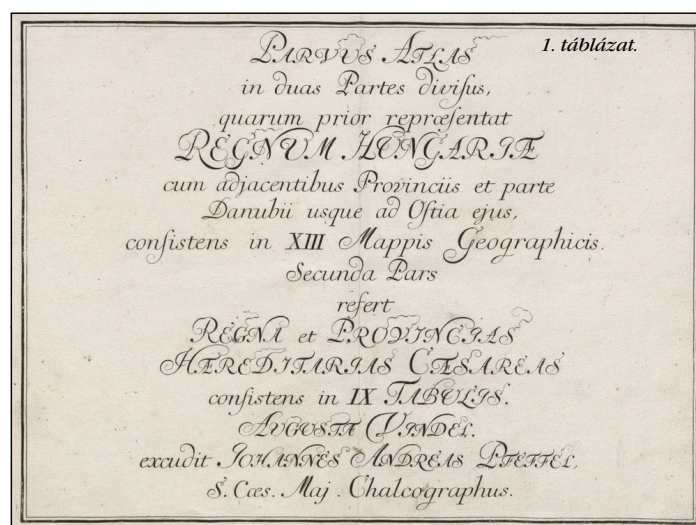 PARVUS ATLAS
1. táblázat.
in duas Partes divisus,
quarum prior repræsentat
REGNUM HUNGARIÆ
cum adjacentibus Provinciis et parte
Danubii usque ad Ostia ejus,
consistens in XIII Mappis Geographicis.
Secunda Pars
refert
REGNA et PROVINCIAS
HÆREDITARIAS CÆSAREAS
consistens in IX TABULIS.
AUGUSTÆ VINDEL.
excudit JOHANNES ANDREAS PFEFFEL,
S. Cæs. Maj. Chalcographus.